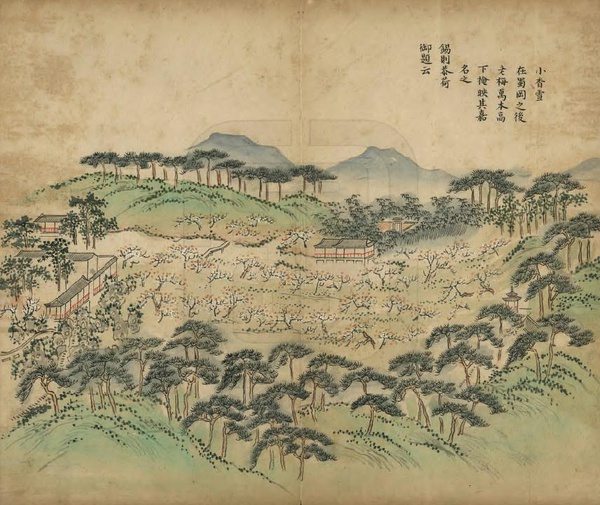 小香雪
在蜀岡之後
老梅萬木高
下掩映其嘉
名之
錫則恭荷
御題云